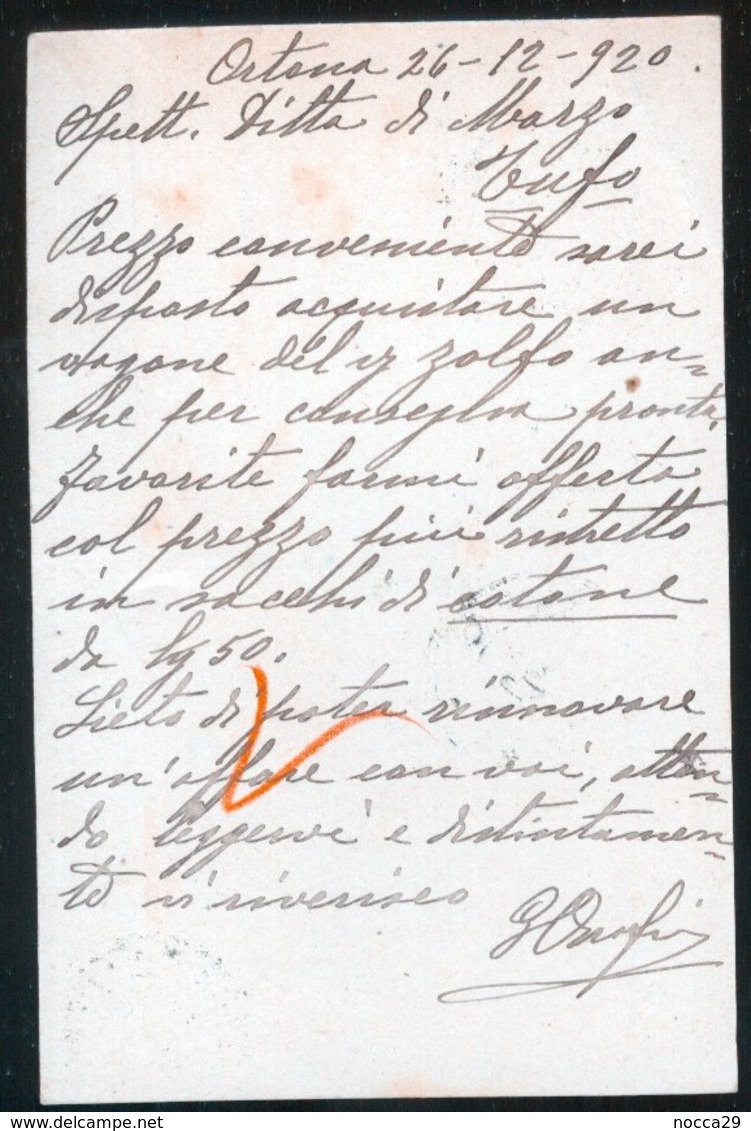 Ortona 26-12-920.
Spett. Ditta di Marzo
Tufo
Prezzo conveniente sarei
disposto acquistare un
vagone del zolfo an=
che per consegna pronta.
Favorite farmi offerta
col prezzo più ristretto
in sacchi di cotone
da Kg 50.
Lieto di poter rinnovare
un'affare con voi, atten=
do leggervi e distintamen=
te vi riverisco
nocca29